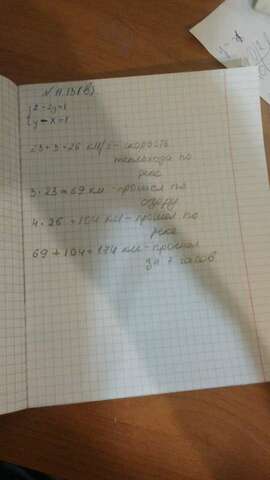 N 11.13(в).
{x - 2y=1
{y - x=1
23+3=26 км/ч - скорость
теплохода по
реке
3·23=69 км - прошел по
озеру
4·26=104 км - прошел по
реке
69+104=174 км - прошел
за 7 часов